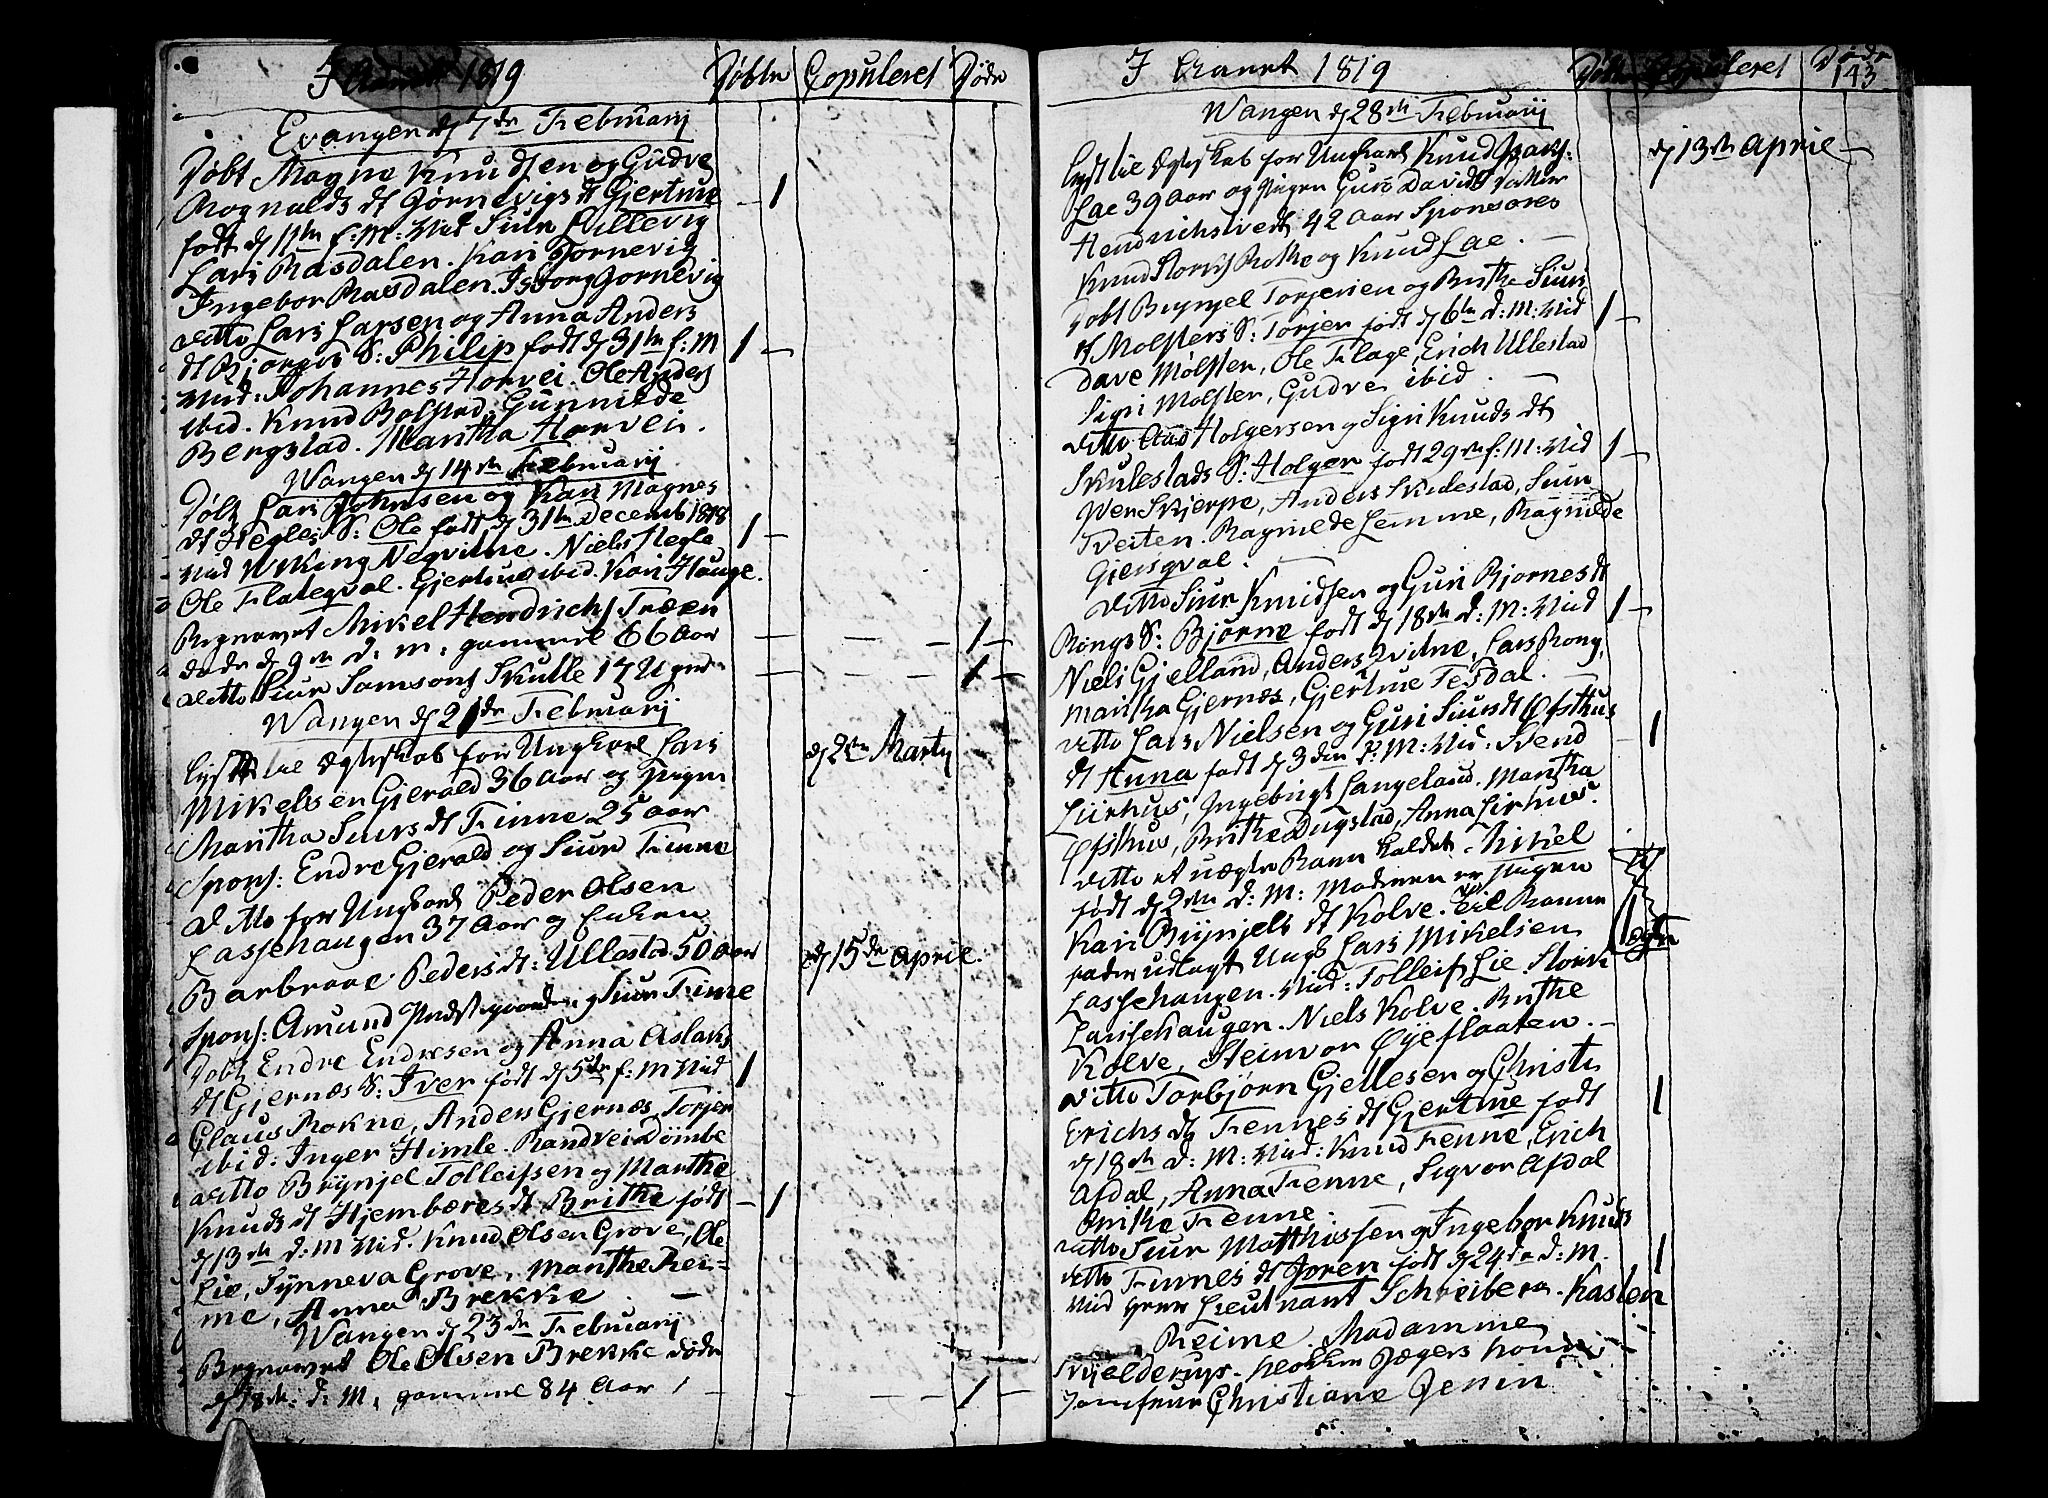 I Aaret 1819 Døbte Copuleret Døde
Evangen dj 7de Februarij
Døbt Magne Knudsen og Gudve
Rognalds dt Jørnevigs dt Gjertrue 1
født dj 11te f: M: Vid Siur
Lars Rasdalen. Kari Jornevig
Ingebor Rasdalen. Isborg Jornevig
ditto Lars Larsen og Anna Anders
dt Bjorges S: Philip født dj 31te f: M 1
Vid: Johannes Horvei. Ole Anders
ibid. Knud Bolstad, Gunnilde
Bergstad. Martha Horvei.
Wangen dj 14de Februarij
Døbt Lars Johnsen og Kari Magnes
dt Hegles S: Ole født dj 31te Decemb 1818 1
Vid Wiking Negvitne. Niels Hegle
Ole Flateqval. Gjertrue ibid. Kari Hauge.
Begravet Mikel Hendrichs Træen
døde dj 9de d: m: gammel 66 Aar 1
ditto Siur Samsons Skulle 17 Uger 1
Wangen dj 21de Februarij
Lyst til Egteskab for Ungkarl Lars dj 2den Martij
Mikelsen Gjerald 36 Aar og Pigen
Maritha Siurs dt Finne 25 aar
Spons: Endre Gjerald og Siur Finne
Ditto for Ungkarl Peder Olsen
Lassehaugen 37 Aar og Enken
Barbraae Peders dt: Ullestad 50 aar dj 15de April
Spons: Amund Prestegaarden og Siur Finne
Døbt Endre Endresen og Anna Aslaks
dt Gjernæs S: Iver født dj 5de f: M Vid 1
Claus Rokne, Anders Gjernæs, Torjer
ibid: Inger Himle. Randvei Dømbe
ditto Brynjel Tolleifsen og Marthe
Knuds dt Hjembæres dt Brithe født 1
dj 13de d: M Vid. Knud Olsen Grove, Ole
Lie, Synneva Grove, Marthe Rei=
me, Anna Brekke
Wangen dj 23de Februarij
Begravet Ole Olsen Brekke døde
dj 18de: d: M. gammel 84 Aar 1
I Aaret 1819 Døbte Copuleret Døde
143
Wangen dj 28de Februarij
Lyst til Egteskab for Ungkarl Knud dj 13de April
Lae 39 Aar og Pigen Guro Davids datter
Hendrichstvedt 42 Aar Sponsores
Knud Storks Rothe og Knud Lae.
Døbt Brynjel Torjersen og Brithe Siurs
dt Mølsters S: Torjer født dj 6te d: M: Vid 1
Dave Mølster, Ole Flage, Erich Ullestad
Sigri Mølster, Gudve ibid.
ditto Aad Holgersen og Sigri Knuds dt
Skulestads S: Holger født 29de f: M: Vid 1
Wer Skjerpe, Anders Skulestad, Siur
Tveiten. Ragnilde Lemme, Ragnilde
Gjeisqval.
ditto Siur Knudsen og Guri Bjornes dt
Rongs S: Bjørne født dj 18de d: M: Vid 1
Niels Gjelland, Anders Qvitne, Lars Rong,
Maritha Gjernæs, Gjertrue Tesdal.
ditto Lars Nielsen og Guri Siurs dt Øfsthus
dt Anna født dj 3den d: M: Vid: Svend 1
Liirhus, Ingebrigt Langeland. Martha
Øfsthus, Brithe Dugstad, Anna Lirhus.
ditto et uægte Barn kaldet Mikel
født dj 2den d: M: Moderen er Pigen
Kari Brynjels dt Kolve. Til Barne
fader udlagt Ungk Lars Mikelsen 1
Lassehaugen. Vid: Tolleif Lie. Stork
Lassehaugen. Niels Kolve. Brithe
Kolve, Steinvor Øyeflaaten.
ditto Torbjørn Gjellesen og Christi
Erichs dt Fennes dt Gjertrue født 1
dj 18de d: M: Vid: Knud Fenne, Erich
Afdal, Anna Fenne, Sigvor Afdal
Brithe Fenne.
ditto Siur Matthissen og Ingebor Knuds
ditto Finnes dt Joren født dj 24de d: M. 1
Vid Herr Lieutnant Schreiber. Kasten
Reime. Madamme
Hjelderup. Jægers
Jomfrue Christiane Jersin